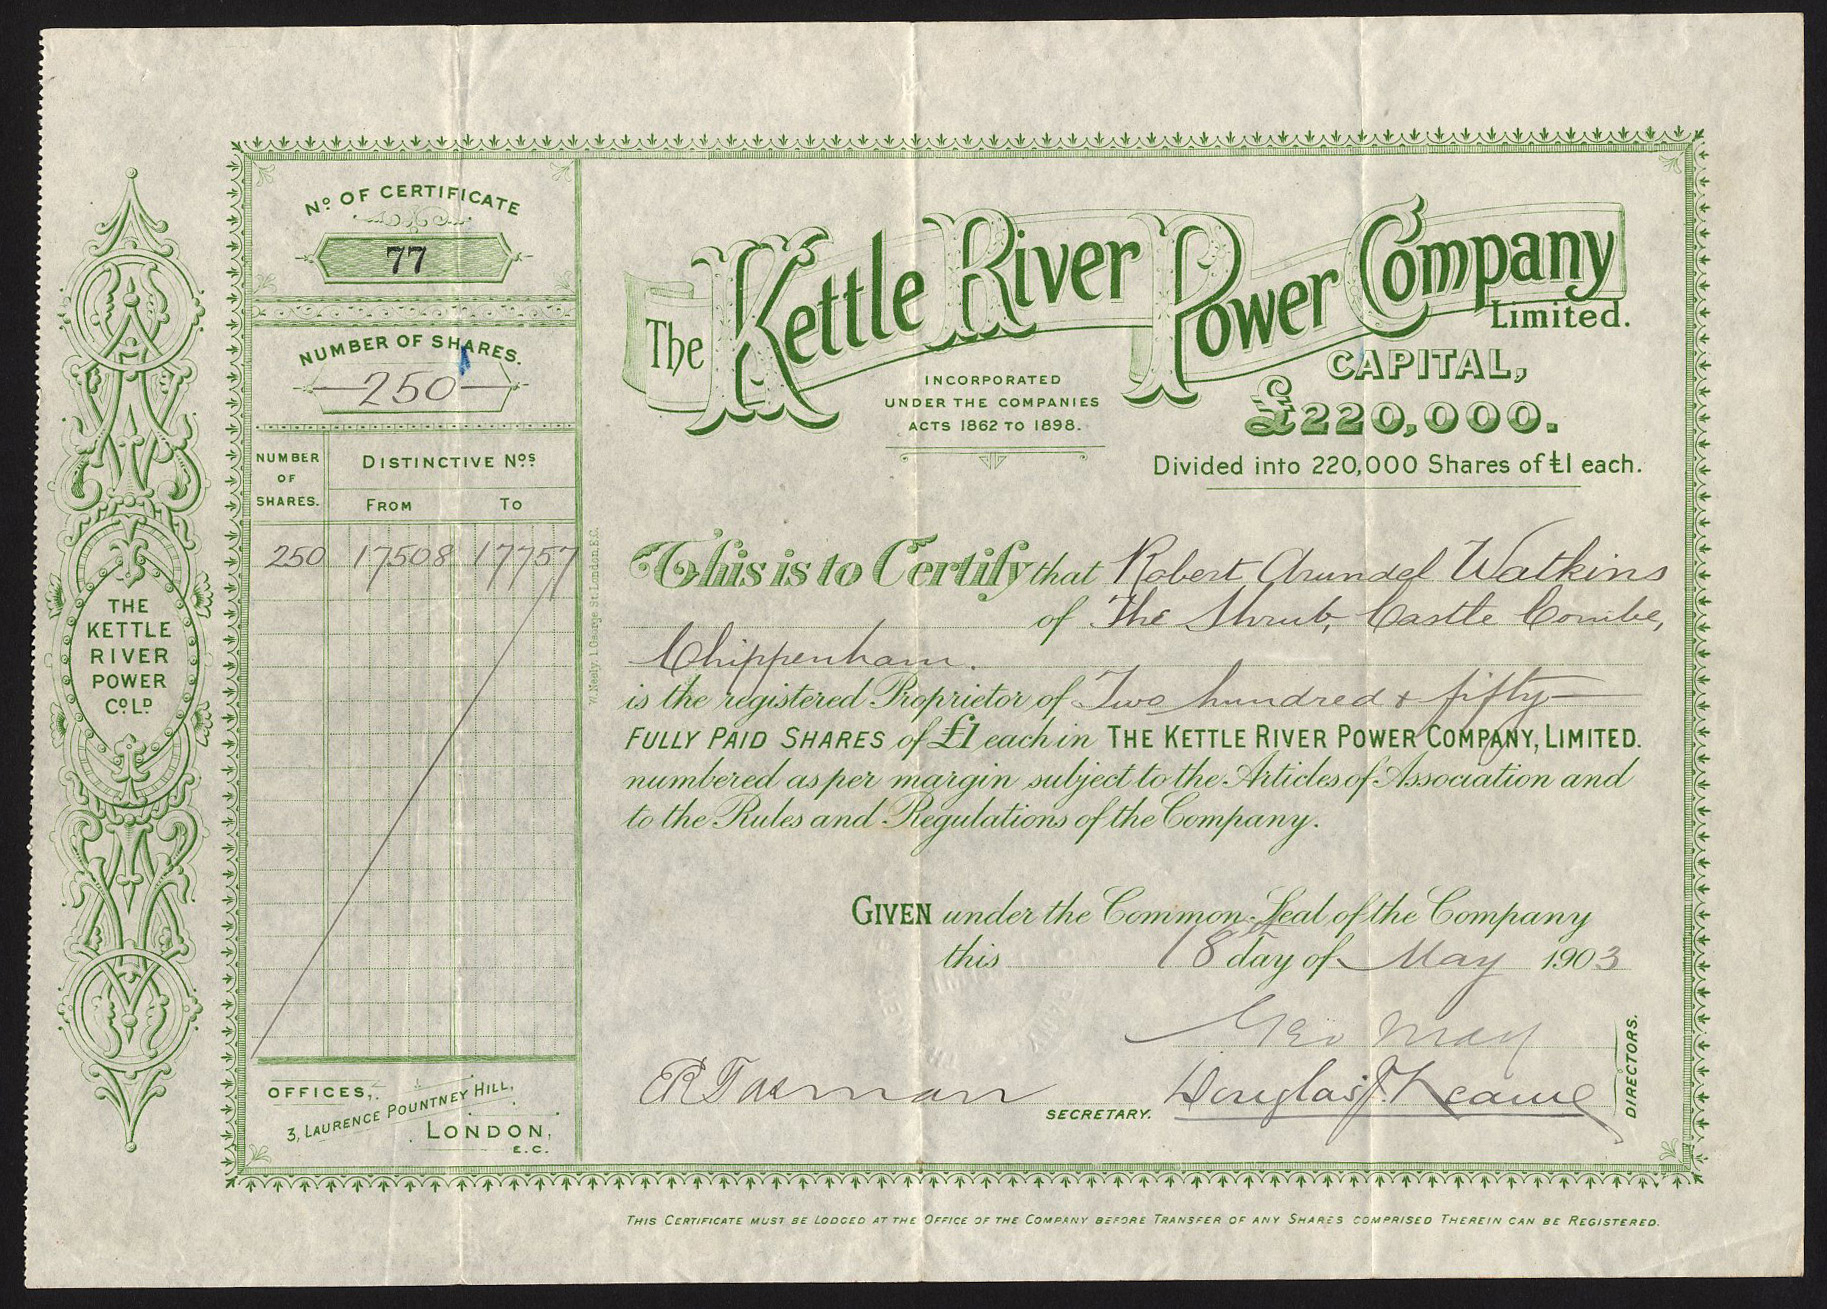 THE
KETTLE
RIVER
POWER
Co. LD.
No. OF CERTIFICATE
77
NUMBER OF SHARES.
250
NUMBER OF SHARES.
DISTINCTIVE Nos.
FROM
TO
250 17508 17757
OFFICES,
3, LAURENCE POUNTNEY HILL,
LONDON,
E.C.
The Kettle River Power Company
Limited.
INCORPORATED
UNDER THE COMPANIES
ACTS 1862 TO 1898.
CAPITAL,
£220,000.
Divided into 220,000 Shares of £1 each.
This is to Certify that Robert Arundel Watkins
of The Shrub, Castle Combe,
Chippenham.
is the registered Proprietor of Two hundred & fifty
FULLY PAID SHARES of £1 each in THE KETTLE RIVER POWER COMPANY, LIMITED.
numbered as per margin subject to the Articles of Association and
to the Rules and Regulations of the Company.
GIVEN under the Common Seal of the Company
this 18th day of May 1903
Geo May
Douglas
SECRETARY.
DIRECTORS.
THIS CERTIFICATE MUST BE LODGED AT THE OFFICE OF THE COMPANY BEFORE TRANSFER OF ANY SHARES COMPRISED THEREIN CAN BE REGISTERED.